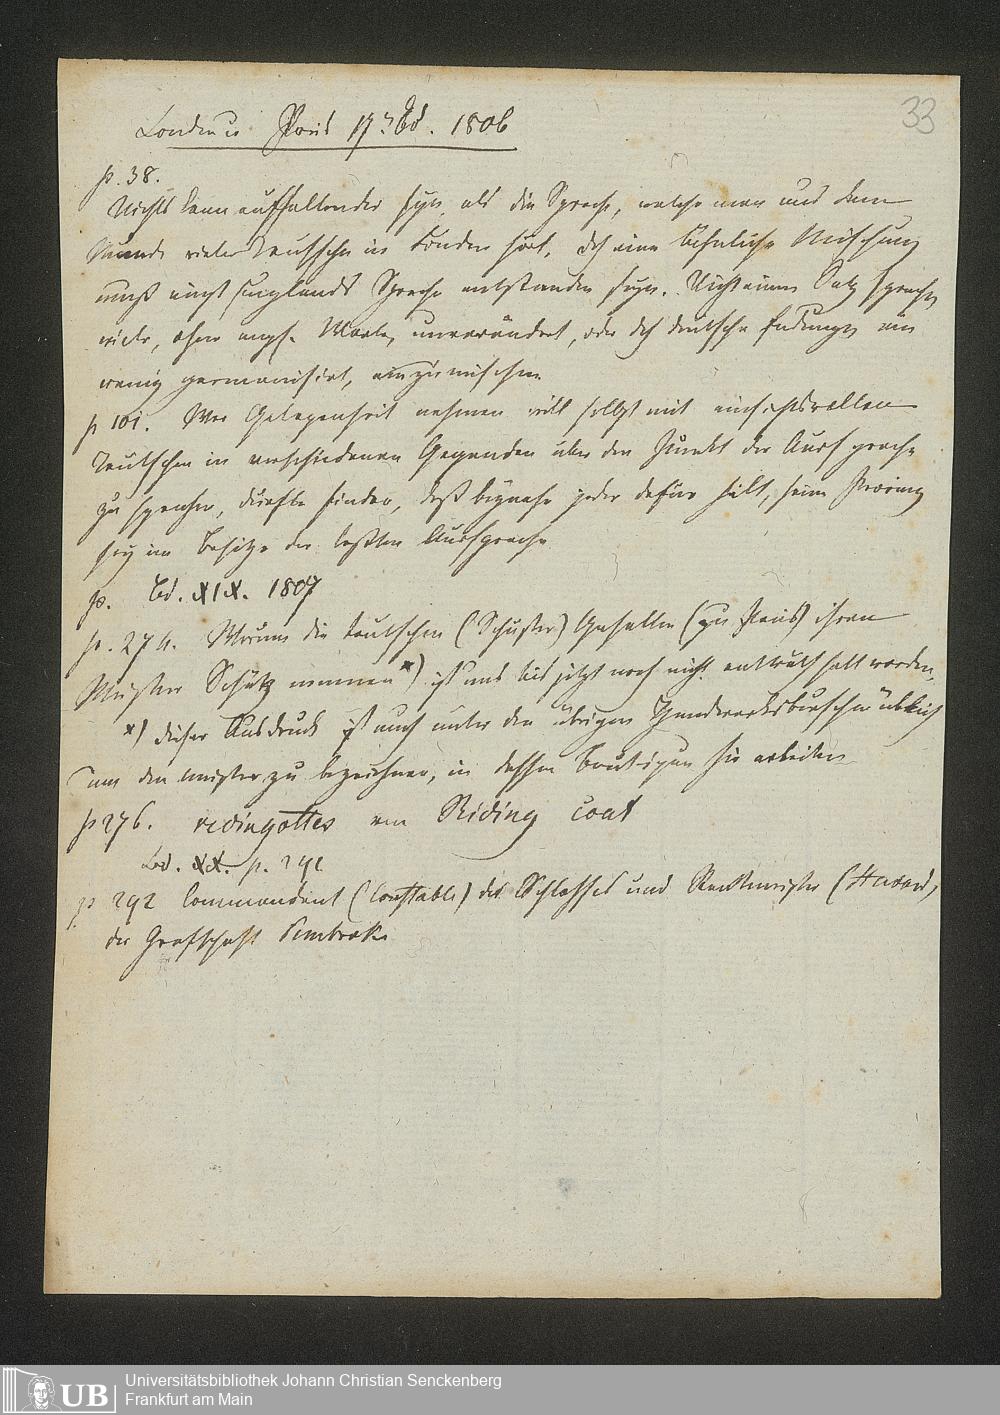 London u Paris 17r Bd. 1806
33
p. 38.
Nichts kann auffallender seyn, als die Sprache, welche man aus dem
Munde vieler Teutschen in London hört, doch eine ähnliche Mischung
muß einst Englands Sprache entstanden seyn. Nicht einen Satz sprechen
viele, ohne engl. Worte, unverändert, oder durch deutsche Endungen ein
wenig germanisirt, einzumischen
p 101. Wer Gelegenheit nehmen will selbst mit einsichtsvollen
Teutschen in verschiedenen Gegenden über den Punkt der Aussprache
zu sprechen, dürfte finden, daß beynahe jeder dafür hält, seine Provinz
sey im Besitze der besten Aussprache
p. Bd. XIX. 1807
p. 274. Warum die teutschen (Schuster) Gesellen (zu Paris) ihren
Meister Schütz nennen *) ist uns bis jetzt noch nicht enträthselt worden.
*) dieser Ausdruck ist auch unter den übrigen Handwerksburschen üblich
um den Meister zu bezeichnen, in dessen Boutiquen sie arbeiten
p 276. redingottes von Riding coat
Bd. XX. p. 292
p 292 Commandant (Constable) des Schlosses und Rentmeister (Steward)
der Grafschaft Pembroke
UB Universitätsbibliothek Johann Christian Senckenberg
Frankfurt am Main